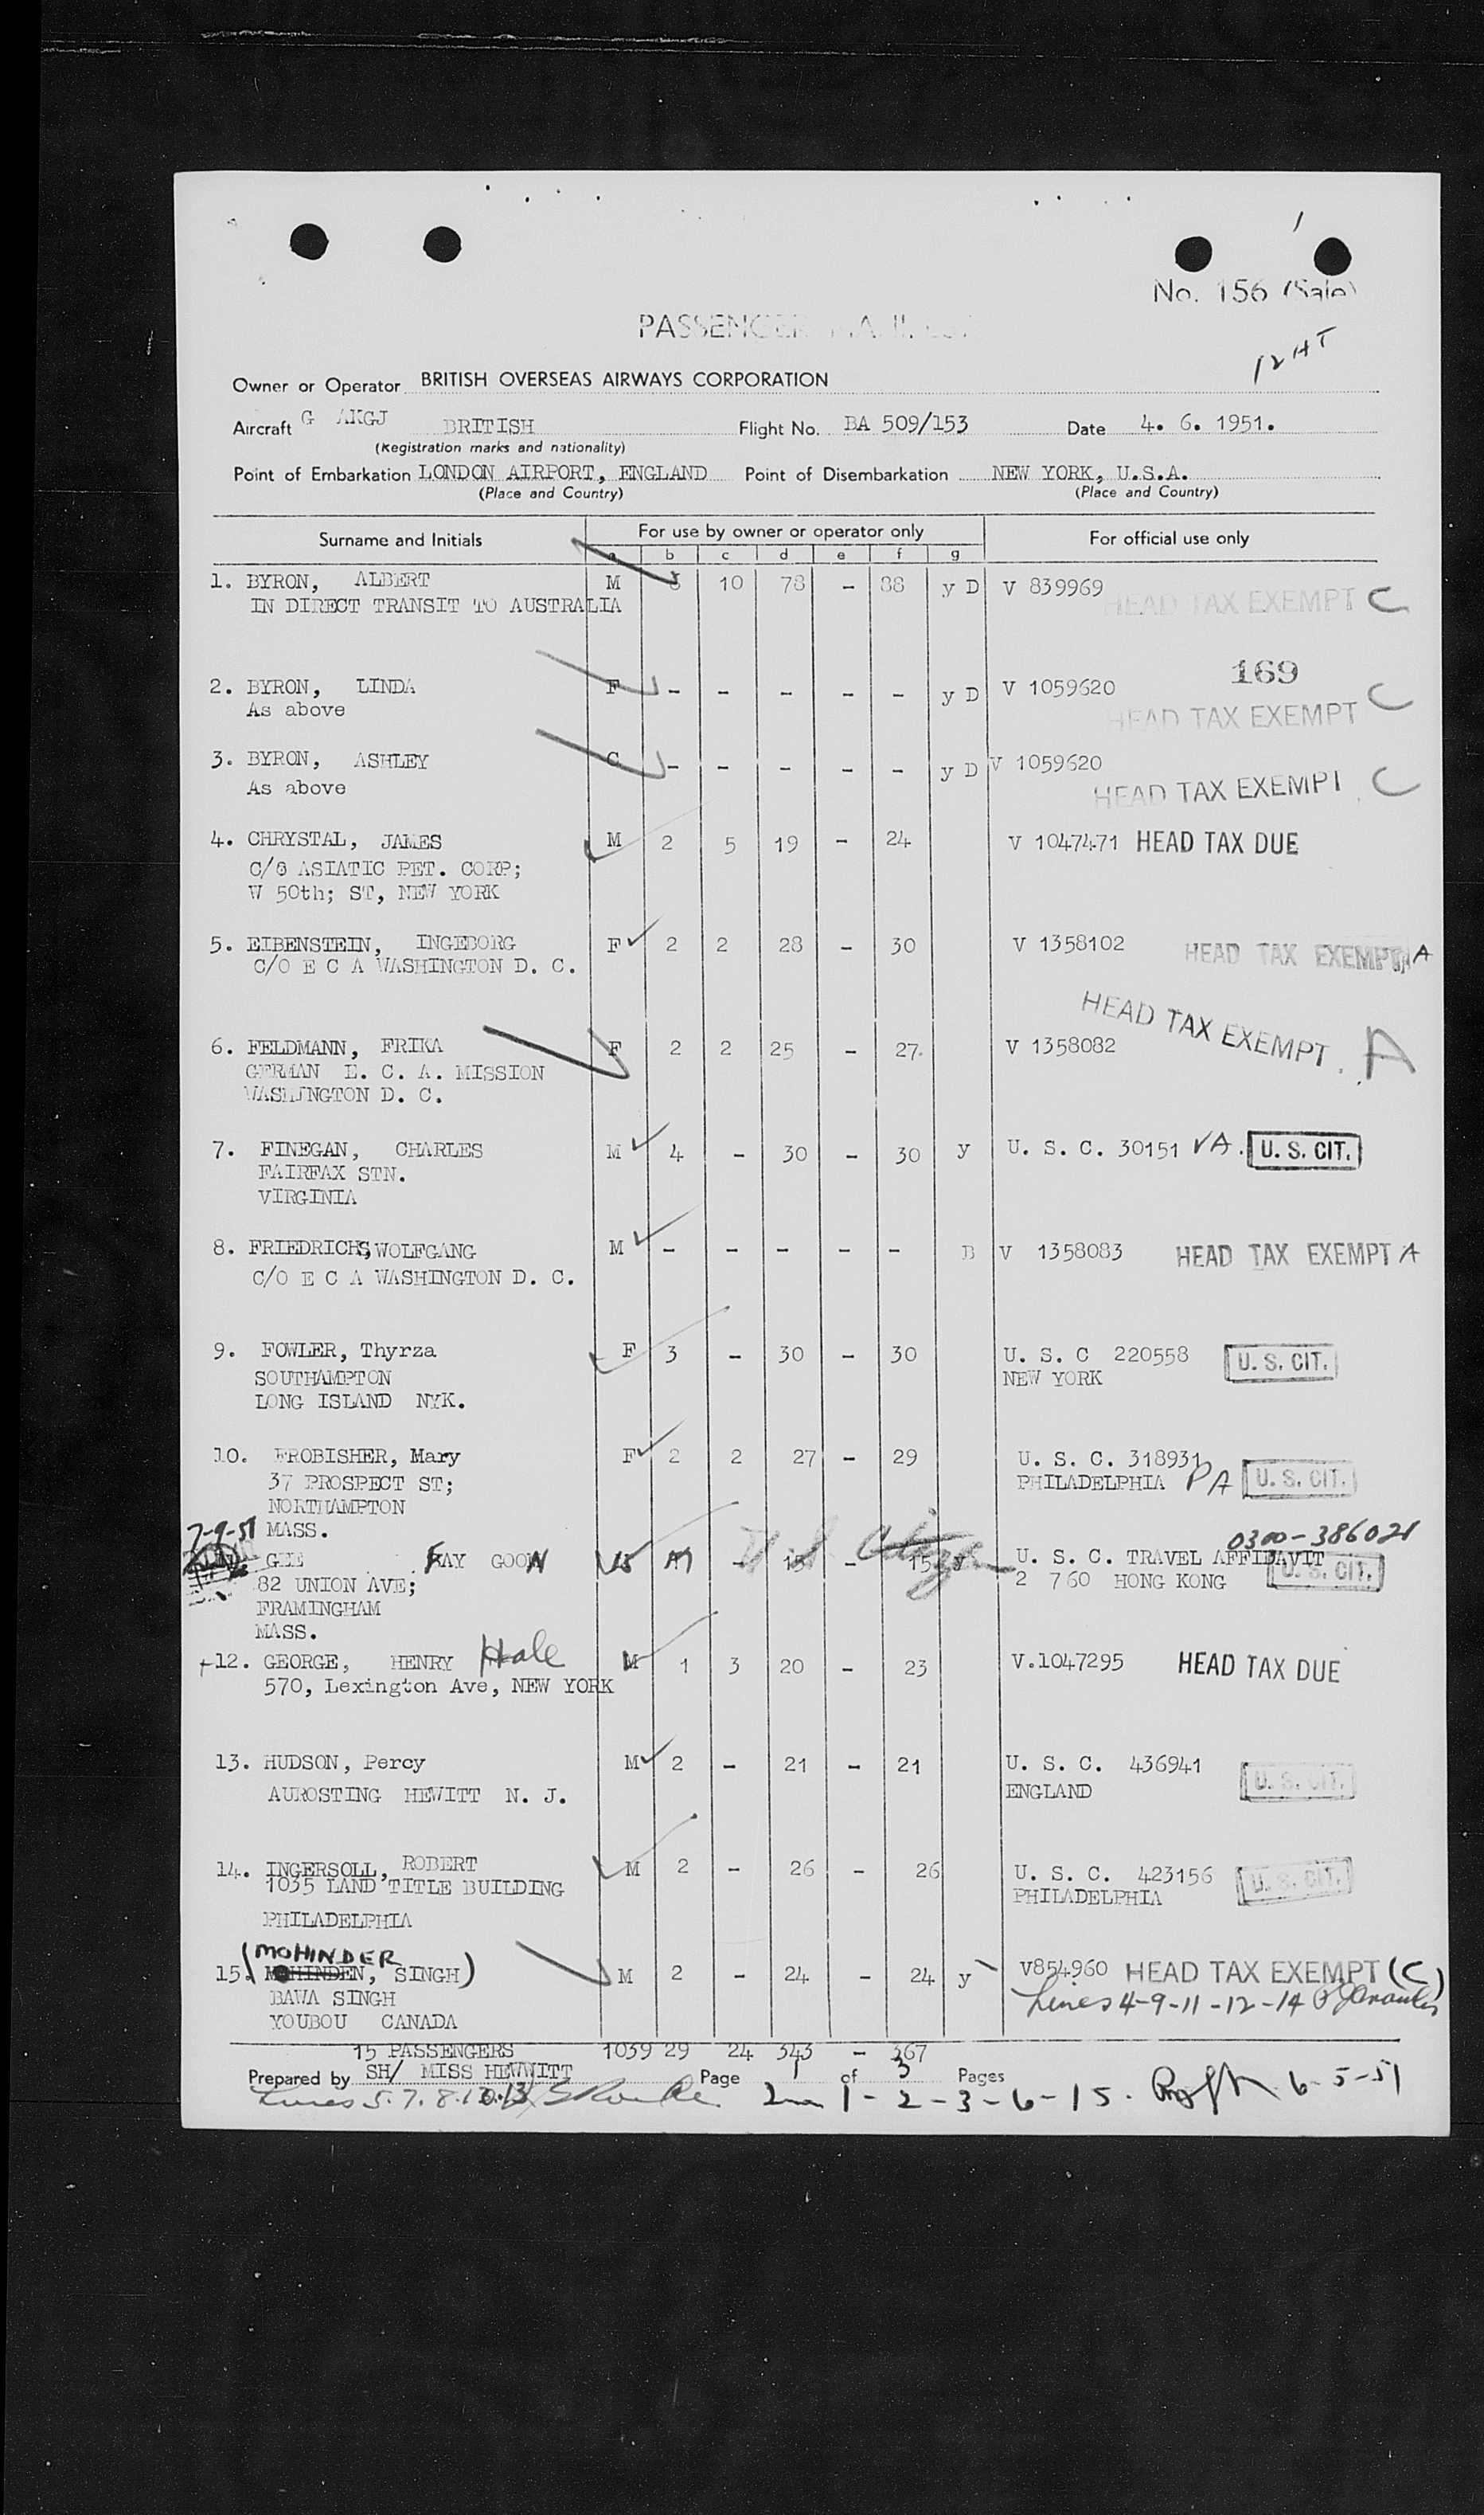 No. 156 (Sale)
PASSENGER
12 HT
Owner or Operator BRITISH OVERSEAS AIRWAYS CORPORATION
Aircraft G AKGJ BRITISH Flight No. BA 509/153 Date 4. 6. 1951.
(Registration marks and nationality)
Point of Embarkation LONDON AIRPORT, ENGLAND Point of Disembarkation NEW YORK, U.S.A.
(Place and Country) (Place and Country)
Surname and Initials For use by owner or operator only For official use only
a b c d e f g
1. BYRON, ALBERT M 10 78 - 88 y D V 839969 HEAD TAX EXEMPT C
IN DIRECT TRANSIT TO AUSTRALIA
169
2. BYRON, LINDA F - - - - - y D V 1059620
As above HEAD TAX EXEMPT C
3. BYRON, ASHLEY C - - - - - y D V 1059620
As above HEAD TAX EXEMPT C
4. CHRYSTAL, JAMES M 2 5 19 - 24 V 1047471 HEAD TAX DUE
C/O ASIATIC PET. CORP;
W 50th; ST, NEW YORK
5. EIBENSTEIN, INGEBORG F 2 2 28 - 30 V 1358102 HEAD TAX EXEMPT A
C/O E C A WASHINGTON D. C.
6. FELDMANN, FRIKA F 2 2 25 - 27. V 1358082 HEAD TAX EXEMPT A
GERMAN E. C. A. MISSION
WASHINGTON D. C.
7. FINEGAN, CHARLES M 4 - 30 - 30 y U. S. C. 30151 VA. U. S. CIT.
FAIRFAX STN.
VIRGINIA
8. FRIEDRICHS, WOLFGANG M - - - - - B V 1358083 HEAD TAX EXEMPT A
C/O E C A WASHINGTON D. C.
9. FOWLER, Thyrza F 3 - 30 - 30 U. S. C 220558 U. S. CIT.
SOUTHAMPTON NEW YORK
LONG ISLAND NYK.
10. FROBISHER, Mary F 2 2 27 - 29 U. S. C. 318931
37 PROSPECT ST; PHILADELPHIA PA U. S. CIT.
NORTHAMPTON
7-9-51 MASS. 0300-386021
GEE FAY GOON M - 15 - 15 U.S. Citizen U. S. C. TRAVEL AFFIDAVIT
82 UNION AVE; 2 760 HONG KONG U. S. CIT.
FRAMINGHAM
MASS.
+12. GEORGE, HENRY Hale M 1 3 20 - 23 V.1047295 HEAD TAX DUE
570, Lexington Ave, NEW YORK
13. HUDSON, Percy M 2 - 21 - 21 U. S. C. 436941
AUROSTING HEWITT N. J. ENGLAND U. S. CIT.
14. INGERSOLL, ROBERT M 2 - 26 - 26 U. S. C. 423156
1035 LAND TITLE BUILDING PHILADELPHIA U. S. CIT.
PHILADELPHIA
(MOHINDER
15. MOHINDEN, SINGH) M 2 - 24 - 24 y V854960 HEAD TAX EXEMPT (C)
BAWA SINGH Lines 4-9-11-12-14
YOUBOU CANADA
15 PASSENGERS 1039 29 24 343 - 367
Prepared by SH/ MISS HEWWITT Page 1 of 3 Pages
Lines 5.7.8.10.13 1-2-3-6-15. 6-5-51